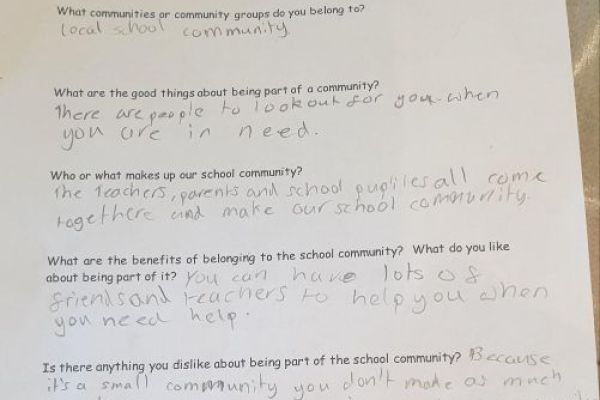 What communities or community groups do you belong to?
local school community
What are the good things about being part of a community?
There are people to look out for you when
you are in need.
Who or what makes up our school community?
The teachers, parents and school pupliles all come
togethere and make our school community.
What are the benefits of belonging to the school community? What do you like
about being part of it? You can have lots of
friends and teachers to help you when
you need help.
Is there anything you dislike about being part of the school community? Because
it's a small community you don't make as much